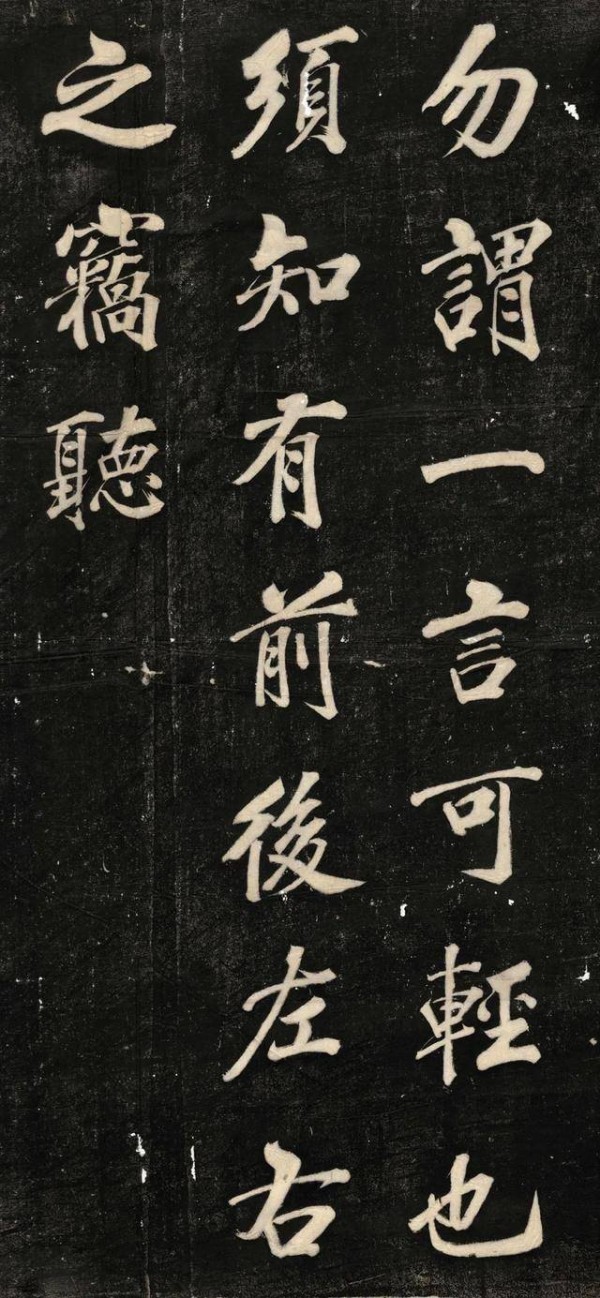 勿謂一言可輕也
須知有前後左右
之竊聽